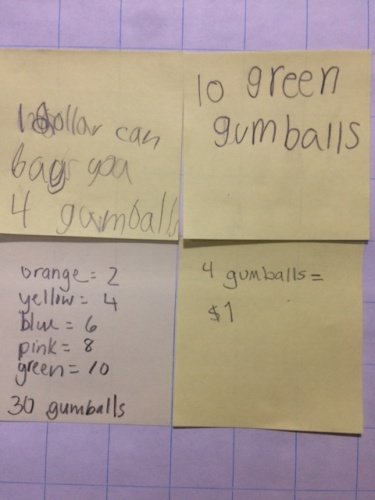 1 dollar can
bay you
4 gumballs
10 green
gumballs
orange = 2
yellow = 4
blue = 6
pink = 8
green = 10
30 gumballs
4 gumballs =
$1